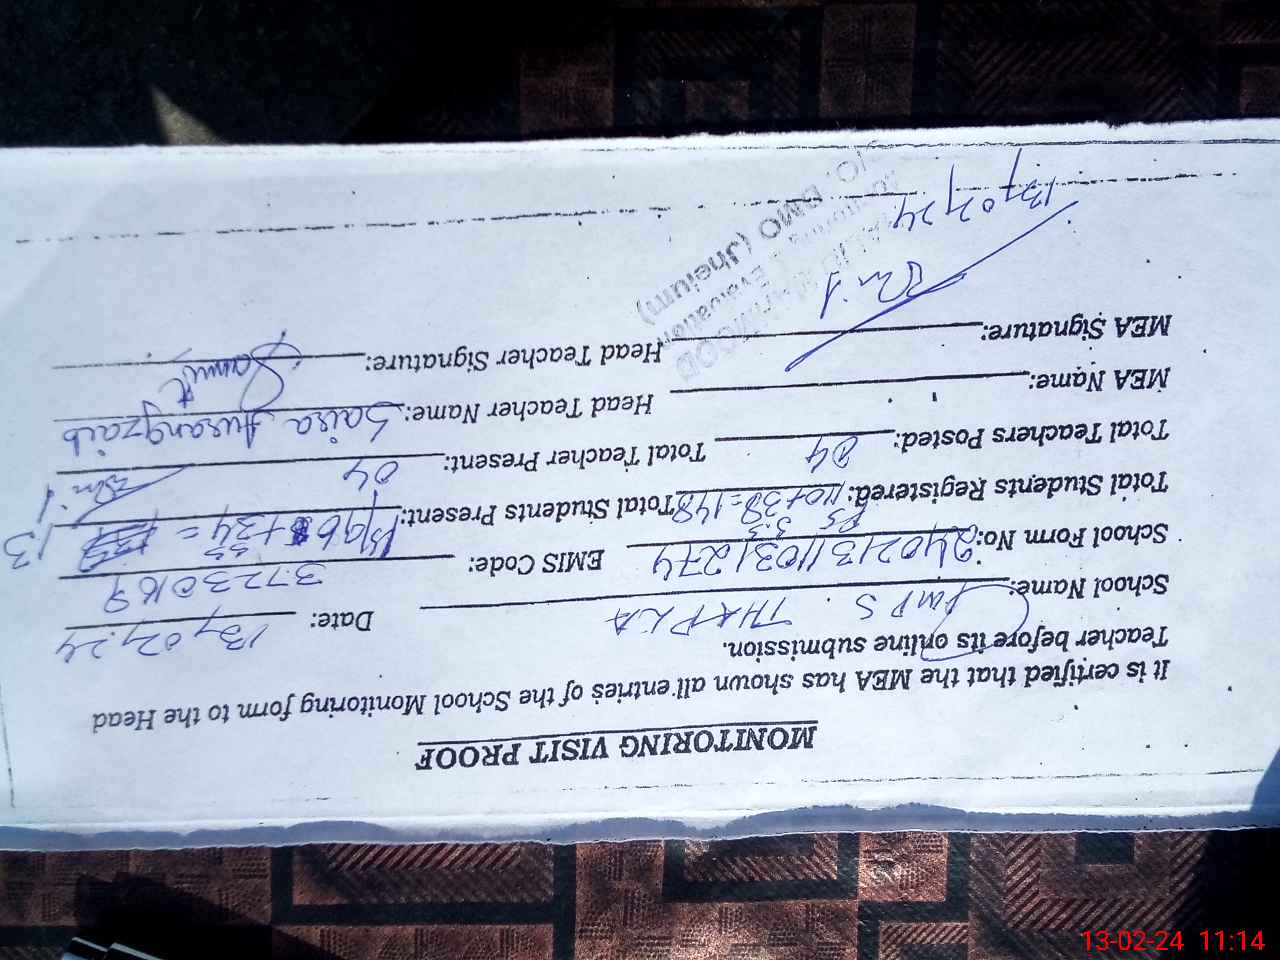 MONITORING VISIT PROOF
It is certified that the MEA has shown all entries of the School Monitoring form to the Head
Teacher before its online submission.
School Name: GMPS THAPLA Date: 13/02/24
School Form No: 24021311031274 EMIS Code: 37230169
Total Students Registered: 110+38=148 Total Students Present: + 34 = 13
Total Teachers Posted: 04 Total Teacher Present: 04
MEA Name: Head Teacher Name: Saira Aurangzaib
MEA Signature: Head Teacher Signature:
13/02/24
Evaluation
O/O. DMO (Jhelum)
13-02-24 11:14